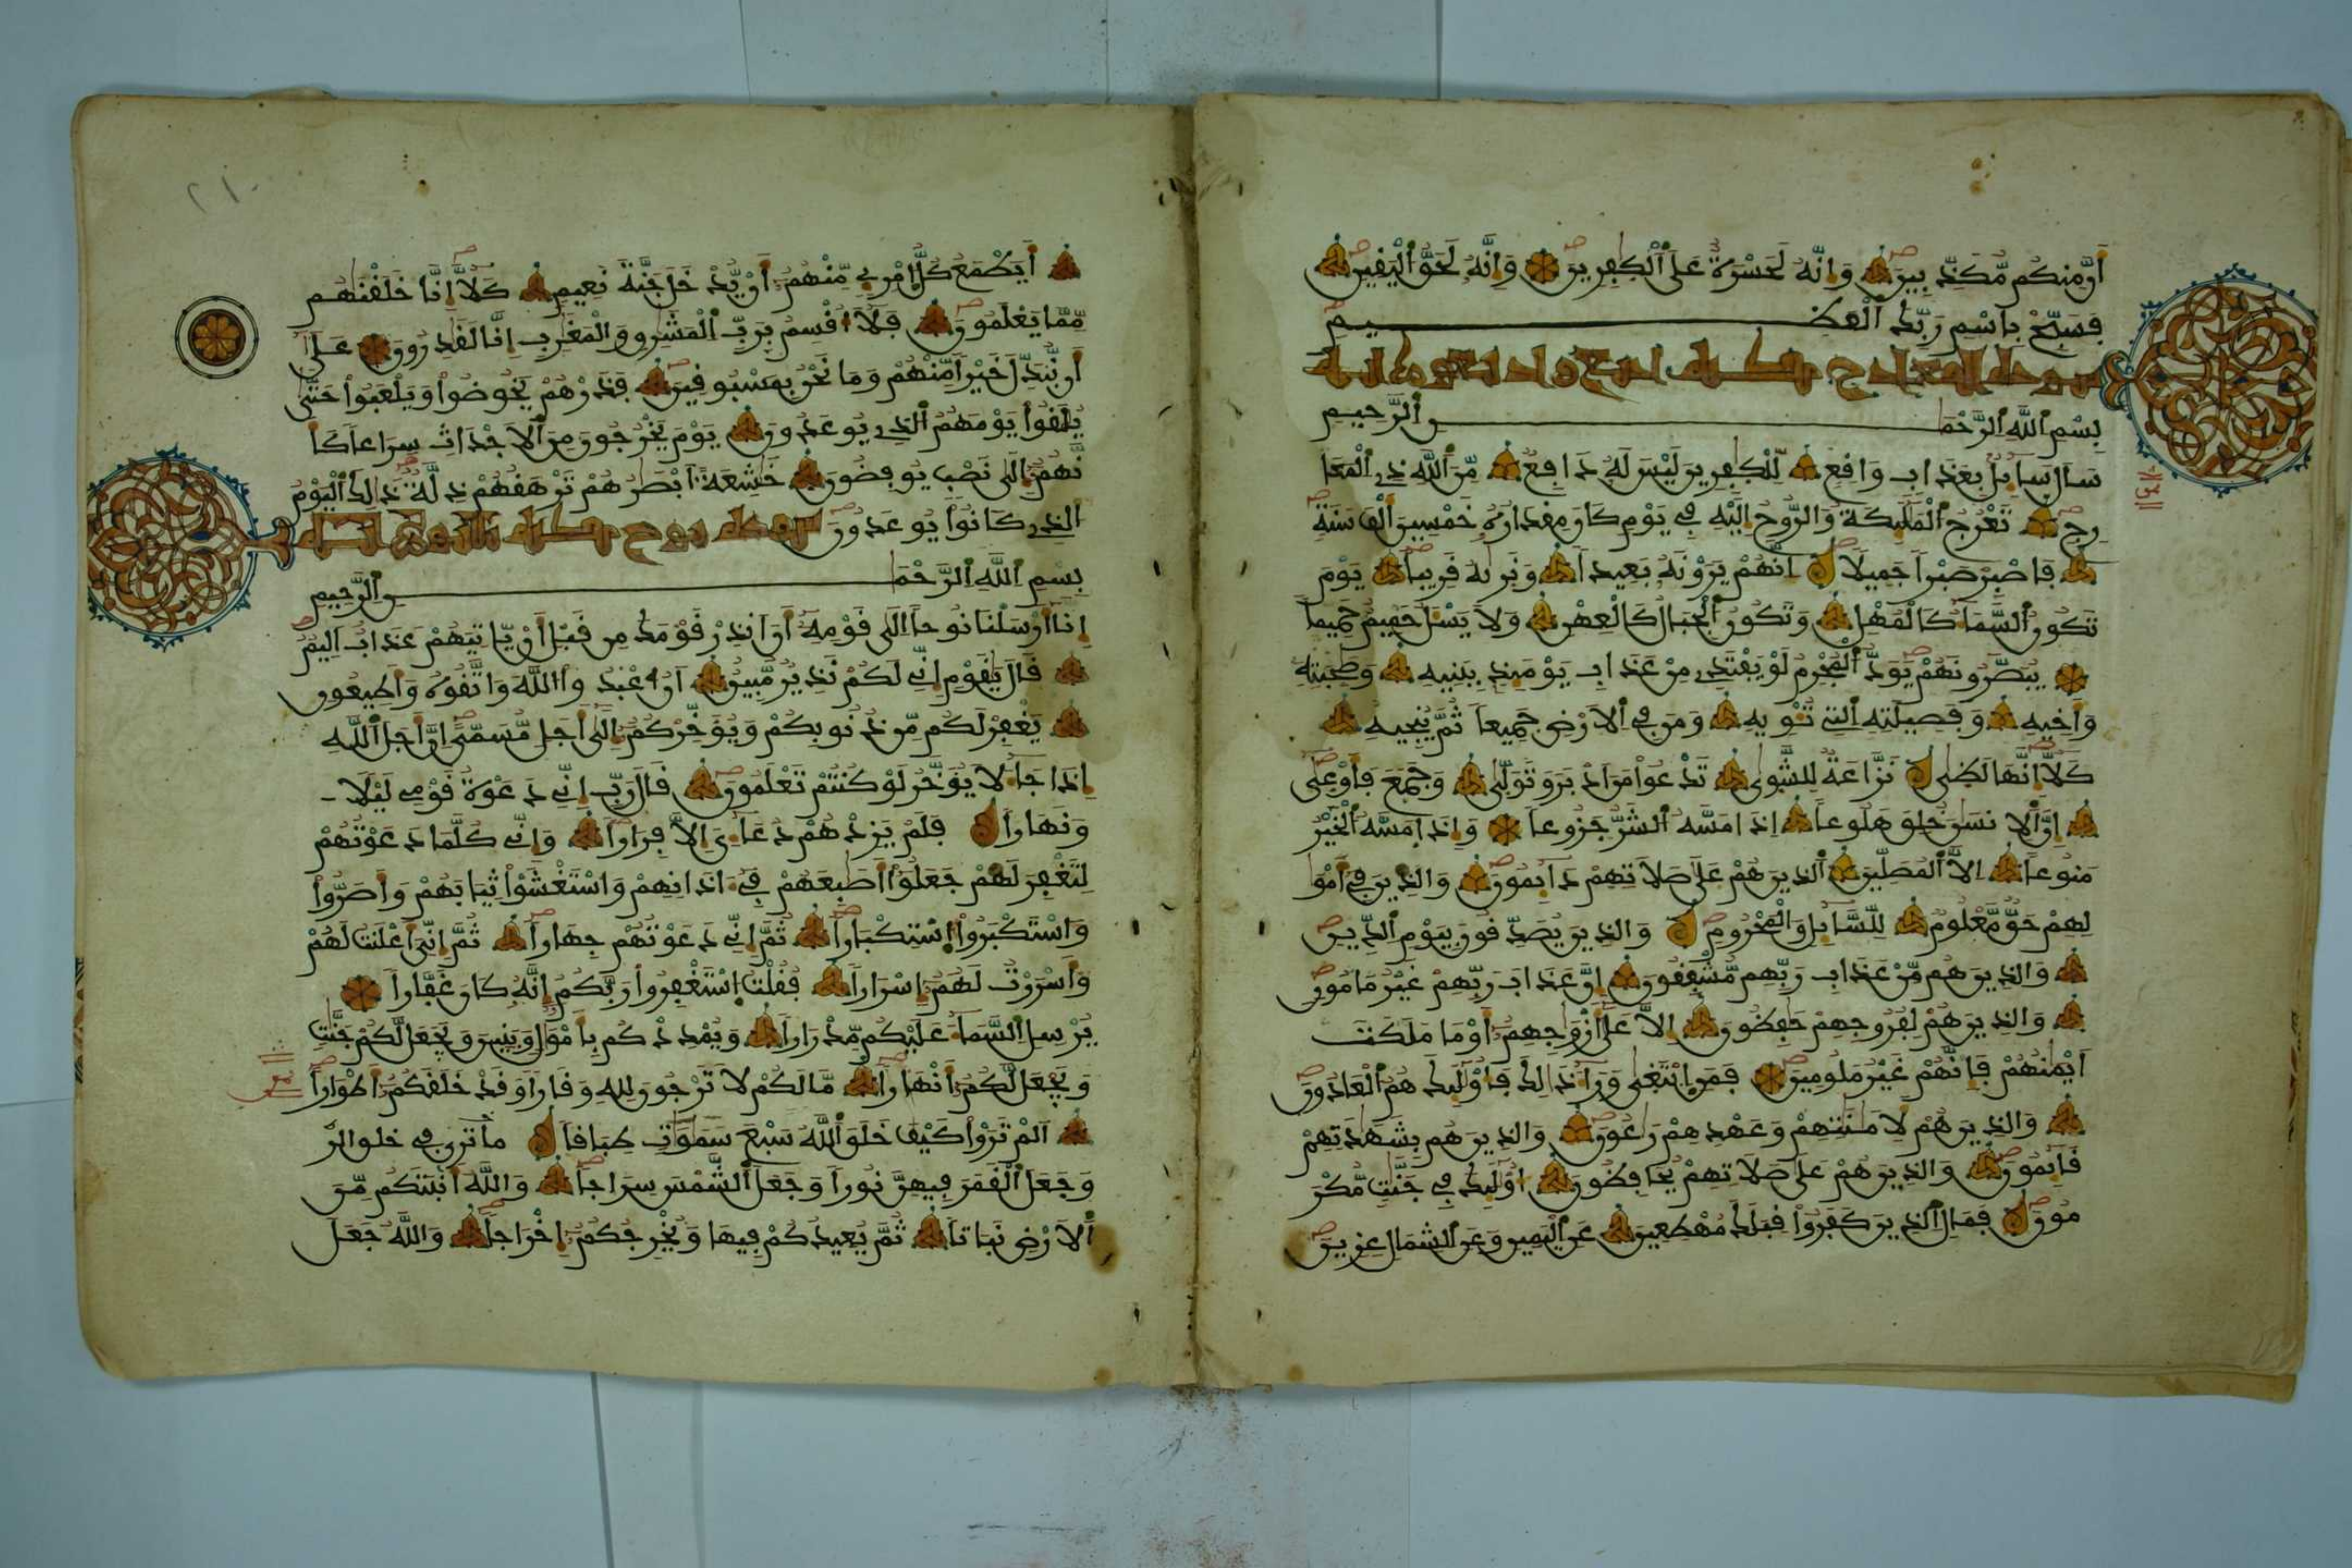 أَنَّ مِنكُم مُّكَذِّبِينَ وَإِنَّهُۥ لَحَسْرَةٌ عَلَى ٱلْكٰفِرِينَ وَإِنَّهُۥ لَحَقُّ ٱلْيَقِينِ
فَسَبِّحْ بِاسْمِ رَبِّكَ ٱلْعَظِيمِ
سورة المعارج مكية اربع واربعون اية
بِسْمِ ٱللَّهِ ٱلرَّحْمَٰنِ ٱلرَّحِيمِ
سَالَ سَآئِلٌ بِعَذَابٍ وَاقِعٍ لِّلْكٰفِرِينَ لَيْسَ لَهُۥ دَافِعٌ مِّنَ ٱللَّهِ ذِى ٱلْمَعَا
رِجِ تَعْرُجُ ٱلْمَلَٰٓئِكَةُ وَالرُّوحُ إِلَيْهِ فِى يَوْمٍ كَانَ مِقْدَارُهُۥ خَمْسِينَ أَلْفَ سَنَةٍ
فَاصْبِرْ صَبْراً جَمِيلاً اِنَّهُمْ يَرَوْنَهُۥ بَعِيداً وَنَرٰىهُ قَرِيباً يَوْمَ
تَكُونُ ٱلسَّمَآءُ كَالْمُهْلِ وَتَكُونُ ٱلْجِبَالُ كَالْعِهْنِ وَلَا يَسْـَٔلُ حَمِيمٌ حَمِيماً
يُبَصَّرُونَهُمْ يَوَدُّ ٱلْمُجْرِمُ لَوْ يَفْتَدِى مِنْ عَذَابِ يَوْمَئِذٍ بِبَنِيهِ وَصَٰحِبَتِهِۦ
وَأَخِيهِ وَفَصِيلَتِهِ ٱلتِى تُـْٔوِيهِ وَمَن فِى ٱلَارْضِ جَمِيعاً ثُمَّ يُنجِيهِ
كَلَّآ إِنَّهَا لَظٰى نَزَّاعَةٌ لِّلشَّوٰى تَدْعُوا مَنَ اَدْبَرَ وَتَوَلّٰى وَجَمَعَ فَأَوْعٰى
إِنَّ ٱلِانسَٰنَ خُلِقَ هَلُوعاً اِذَا مَسَّهُ ٱلشَّرُّ جَزُوعاً وَإِذَا مَسَّهُ ٱلْخَيْرُ
مَنُوعاً اِلَّا ٱلْمُصَلِّينَ ٱلذِينَ هُمْ عَلَىٰ صَلَاتِهِمْ دَآئِمُونَ وَالذِينَ فِىٓ أَمْوَٰ
لِهِمْ حَقٌّ مَّعْلُومٌ لِّلسَّآئِلِ وَالْمَحْرُومِ وَالذِينَ يُصَدِّقُونَ بِيَوْمِ ٱلدِّينِ
وَالذِينَ هُم مِّنْ عَذَابِ رَبِّهِم مُّشْفِقُونَ إِنَّ عَذَابَ رَبِّهِمْ غَيْرُ مَامُونٍ
وَالذِينَ هُمْ لِفُرُوجِهِمْ حَٰفِظُونَ إِلَّا عَلَىٰٓ أَزْوَٰجِهِمُۥٓ أَوْ مَا مَلَكَتَ
اَيْمَٰنُهُمْ فَإِنَّهُمْ غَيْرُ مَلُومِينَ فَمَنِ اِبْتَغٰى وَرَآءَ ذَٰلِكَ فَأُوْلَٰٓئِكَ هُمُ ٱلْعَادُونَ
وَالذِينَ هُمْ لِأَمَٰنَٰتِهِمْ وَعَهْدِهِمْ رَٰعُونَ وَالذِينَ هُم بِشَهَٰدَتِهِمْ
قَآئِمُونَ وَالذِينَ هُمْ عَلَىٰ صَلَاتِهِمْ يُحَافِظُونَ أُوْلَٰٓئِكَ فِى جَنَّٰتٍ مُّكْرَ
مُونَ فَمَالِ ٱلذِينَ كَفَرُوا۟ قِبَلَكَ مُهْطِعِينَ عَنِ ٱلْيَمِينِ وَعَنِ ٱلشِّمَالِ عِزِينَ
أَيَطْمَعُ كُلُّ ٱمْرِىٍٕ مِّنْهُمُۥٓ أَنْ يُّدْخَلَ جَنَّةَ نَعِيمٍ كَلَّآ إِنَّا خَلَقْنَٰهُم
مِّمَّا يَعْلَمُونَ فَلَآ أُقْسِمُ بِرَبِّ ٱلْمَشَٰرِقِ وَالْمَغَٰرِبِ إِنَّا لَقَٰدِرُونَ عَلَىٰٓ
أَن نُّبَدِّلَ خَيْراً مِّنْهُمْ وَمَا نَحْنُ بِمَسْبُوقِينَ فَذَرْهُمْ يَخُوضُوا۟ وَيَلْعَبُوا۟ حَتّٰى
يُلَٰقُوا۟ يَوْمَهُمُ ٱلذِى يُوعَدُونَ يَوْمَ يَخْرُجُونَ مِنَ ٱلَاجْدَاثِ سِرَاعاً كَأَ
نَّهُمُۥٓ إِلَىٰ نَصْبٍ يُوفِضُونَ خَٰشِعَةً اَبْصَٰرُهُمْ تَرْهَقُهُمْ ذِلَّةٌ ذَٰلِكَ ٱلْيَوْمُ
ٱلذِى كَانُوا۟ يُوعَدُونَ سورة نوح مكية ثلاثون اية
بِسْمِ ٱللَّهِ ٱلرَّحْمَٰنِ ٱلرَّحِيمِ
إِنَّآ أَرْسَلْنَا نُوحاً اِلَىٰ قَوْمِهِۦٓ أَنَ اَنذِرْ قَوْمَكَ مِن قَبْلِ أَنْ يَّاتِيَهُمْ عَذَابٌ اَلِيمٌ
قَالَ يَٰقَوْمِ إِنِّى لَكُمْ نَذِيرٌ مُّبِينٌ اَنُ ٱعْبُدُوا۟ ٱللَّهَ وَاتَّقُوهُ وَأَطِيعُونِ
يَغْفِرْ لَكُم مِّن ذُنُوبِكُمْ وَيُوَخِّرْكُمُۥٓ إِلَىٰٓ أَجَلٍ مُّسَمًّى اِنَّ أَجَلَ ٱللَّهِ
إِذَا جَآءَ لَا يُوَخَّرُ لَوْ كُنتُمْ تَعْلَمُونَ قَالَ رَبِّ إِنِّى دَعَوْتُ قَوْمِى لَيْلاً
وَنَهَاراً فَلَمْ يَزِدْهُمْ دُعَآءِىَ إِلَّا فِرَاراً وَإِنِّى كُلَّمَا دَعَوْتُهُمْ
لِتَغْفِرَ لَهُمْ جَعَلُوٓا۟ أَصَٰبِعَهُمْ فِىٓ ءَاذَانِهِمْ وَاسْتَغْشَوْا۟ ثِيَابَهُمْ وَأَصَرُّوا۟
وَاسْتَكْبَرُوا۟ اسْتِكْبَاراً ثُمَّ إِنِّى دَعَوْتُهُمْ جِهَاراً ثُمَّ إِنِّىَ أَعْلَنتُ لَهُمْ
وَأَسْرَرْتُ لَهُمُۥٓ إِسْرَاراً فَقُلْتُ اسْتَغْفِرُوا۟ رَبَّكُمُۥٓ إِنَّهُۥ كَانَ غَفَّاراً
يُرْسِلِ ٱلسَّمَآءَ عَلَيْكُم مِّدْرَاراً وَيُمْدِدْكُم بِأَمْوَٰلٍ وَبَنِينَ وَيَجْعَل لَّكُمْ جَنَّٰتٍ
وَيَجْعَل لَّكُمُۥٓ أَنْهَاراً مَّا لَكُمْ لَا تَرْجُونَ لِلهِ وَقَاراً وَقَدْ خَلَقَكُمُۥٓ أَطْوَاراً
اَلَمْ تَرَوْا۟ كَيْفَ خَلَقَ ٱللَّهُ سَبْعَ سَمَٰوَٰتٍ طِبَاقاً ما ترى فى خلق الر
وَجَعَلَ ٱلْقَمَرَ فِيهِنَّ نُوراً وَجَعَلَ ٱلشَّمْسَ سِرَاجاً وَاللَّهُ أَنۢبَتَكُم مِّنَ
ٱلَارْضِ نَبَاتاً ثُمَّ يُعِيدُكُمْ فِيهَا وَيُخْرِجُكُمُۥٓ إِخْرَاجاً وَاللَّهُ جَعَلَ